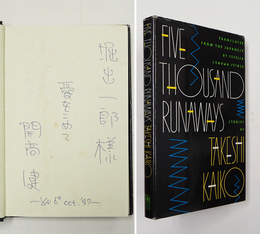 堀出一郎様
愛をこめて
開高健
6th oct. '87
FIVE THOUSAND RUNAWAYS TAKESHI KAIKO
TRANSLATED
FROM THE JAPANESE BY
CECILIA
SEGAWA SEIGLE
FIVE
THOUSAND
RUNAWAYS
STORIES BY
TAKESHI
KAIKO